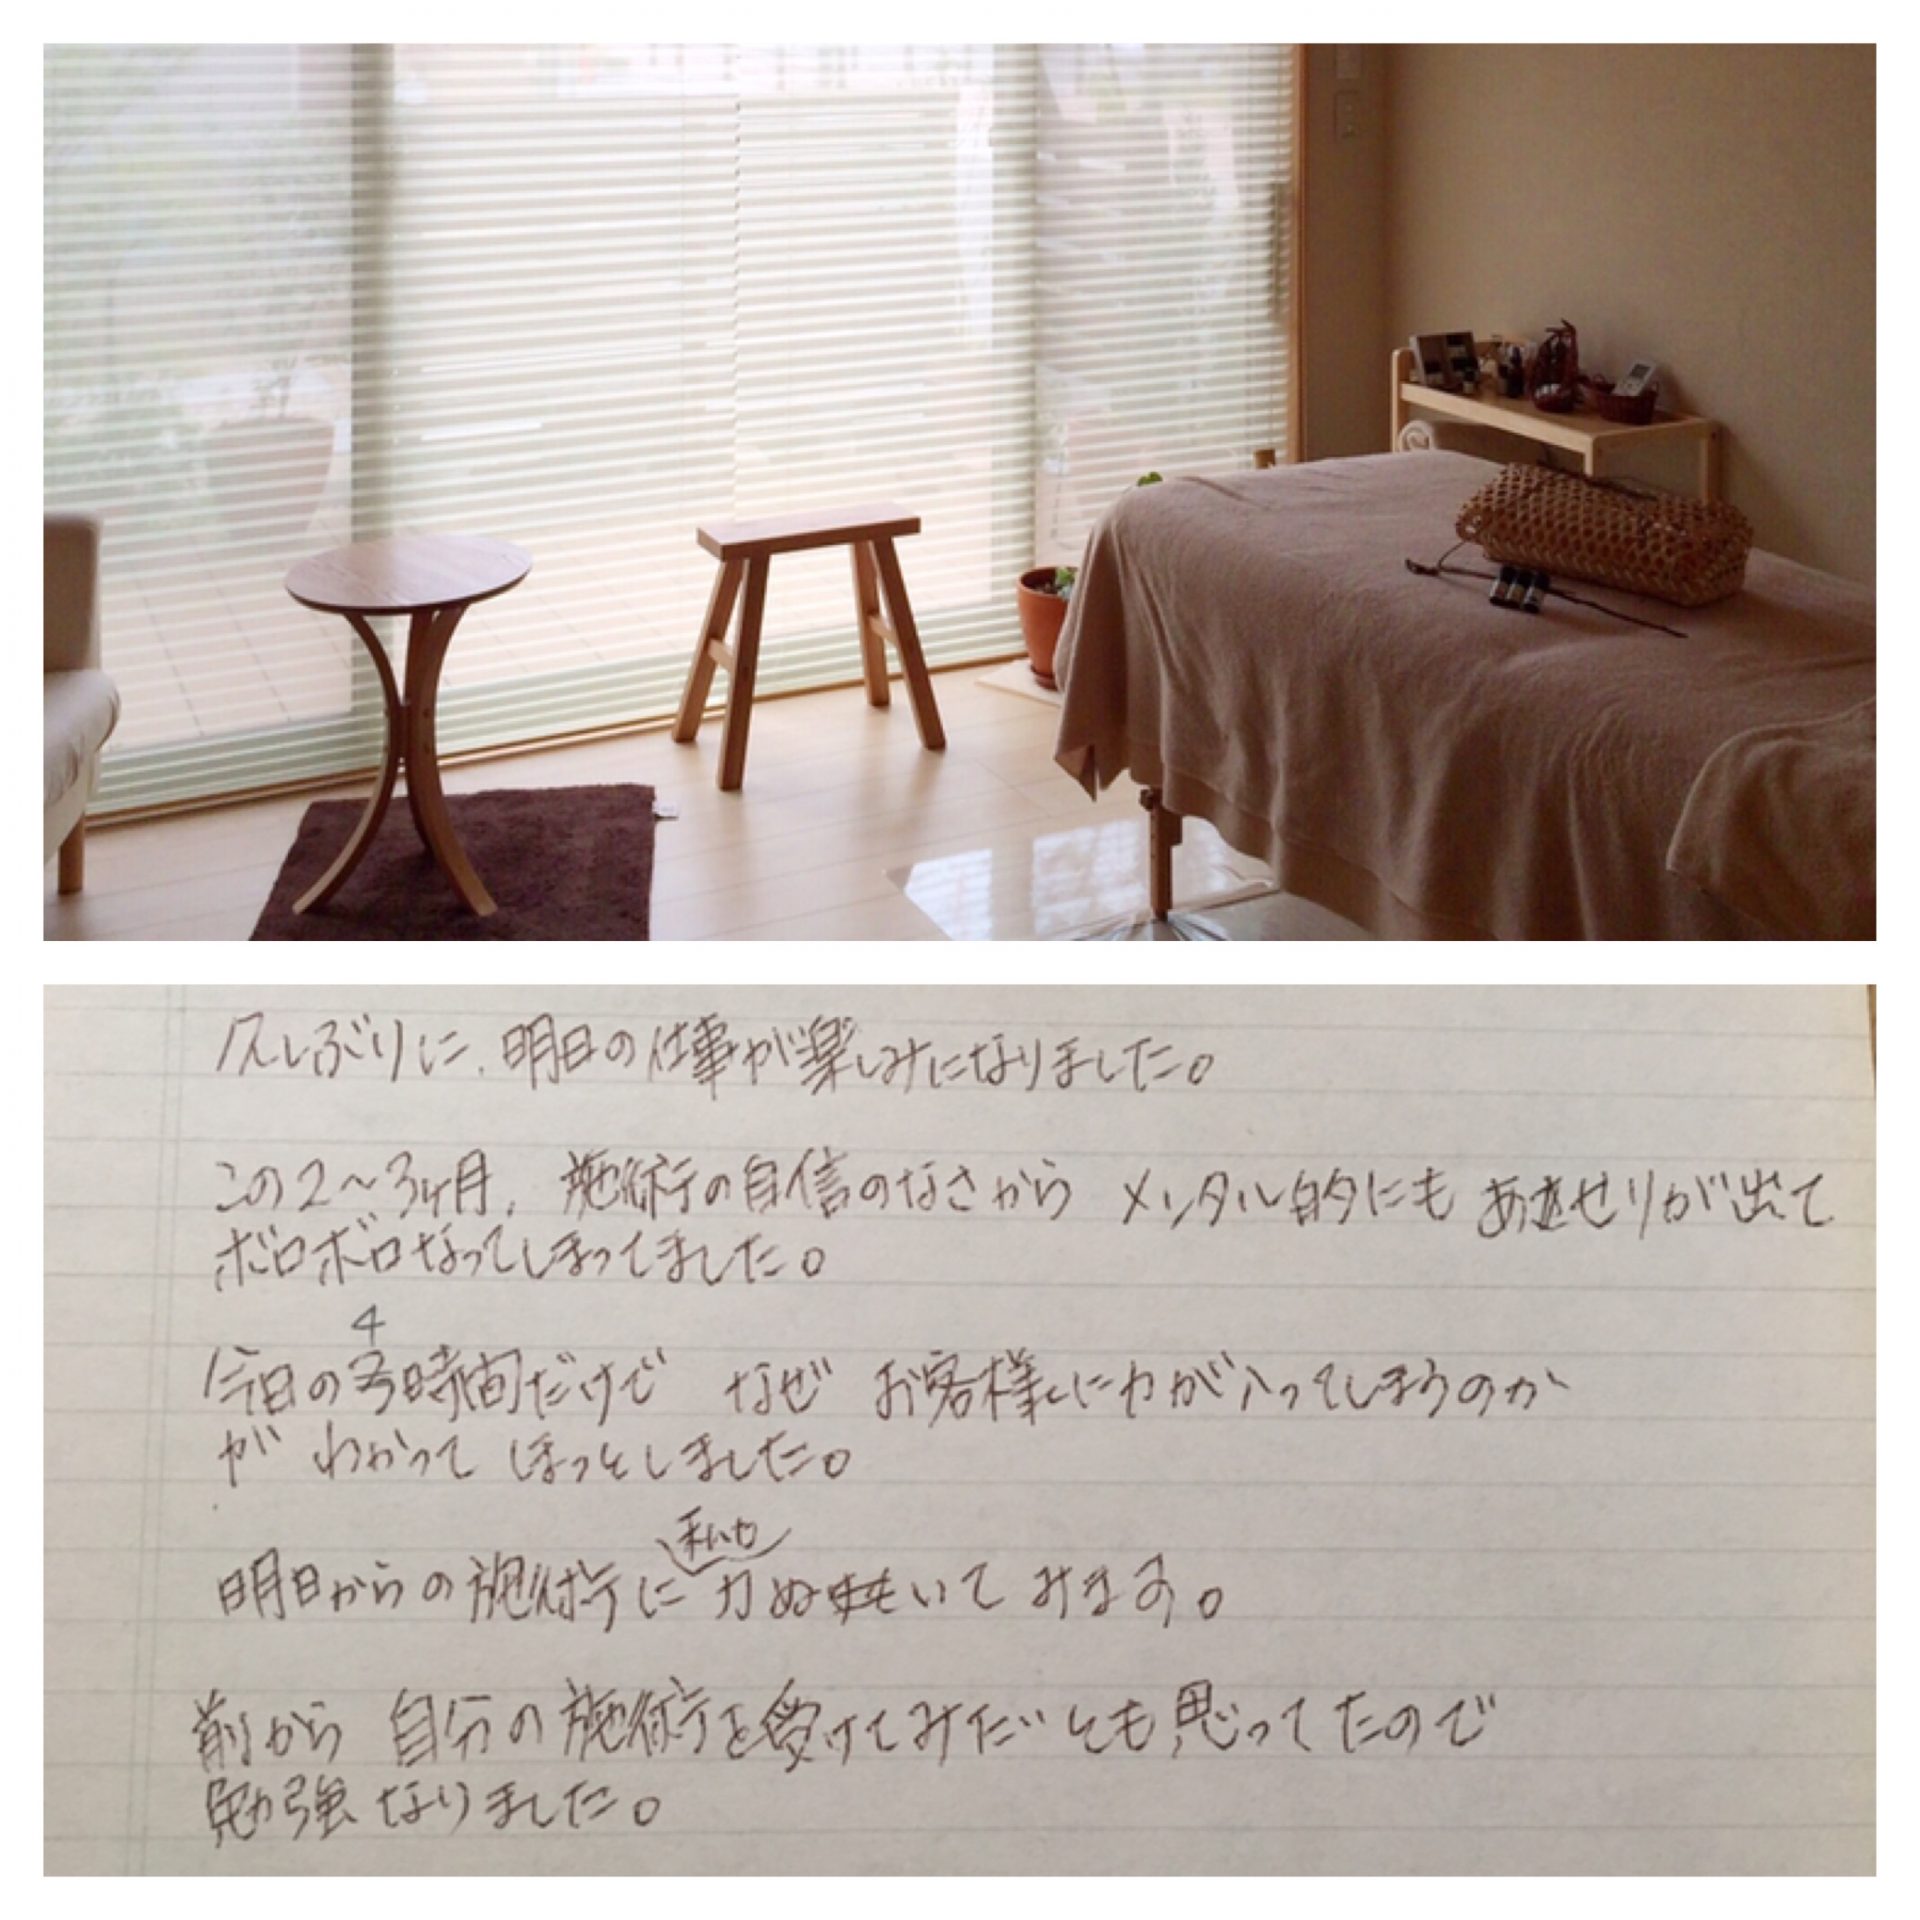 久しぶりに、明日の仕事が楽しみになりました。
この2〜3ヶ月、施術の自信のなさから メンタル的にも あせりが出て
ボロボロなってしまってました。
4
今日の 時間だけで なぜ お客様に力が入ってしまうのか
が わかって ほっとしました。
明日からの施術に 力ぬいて みます。
前から 自分の施術を受けてみたいとも思ってたので
勉強なりました。